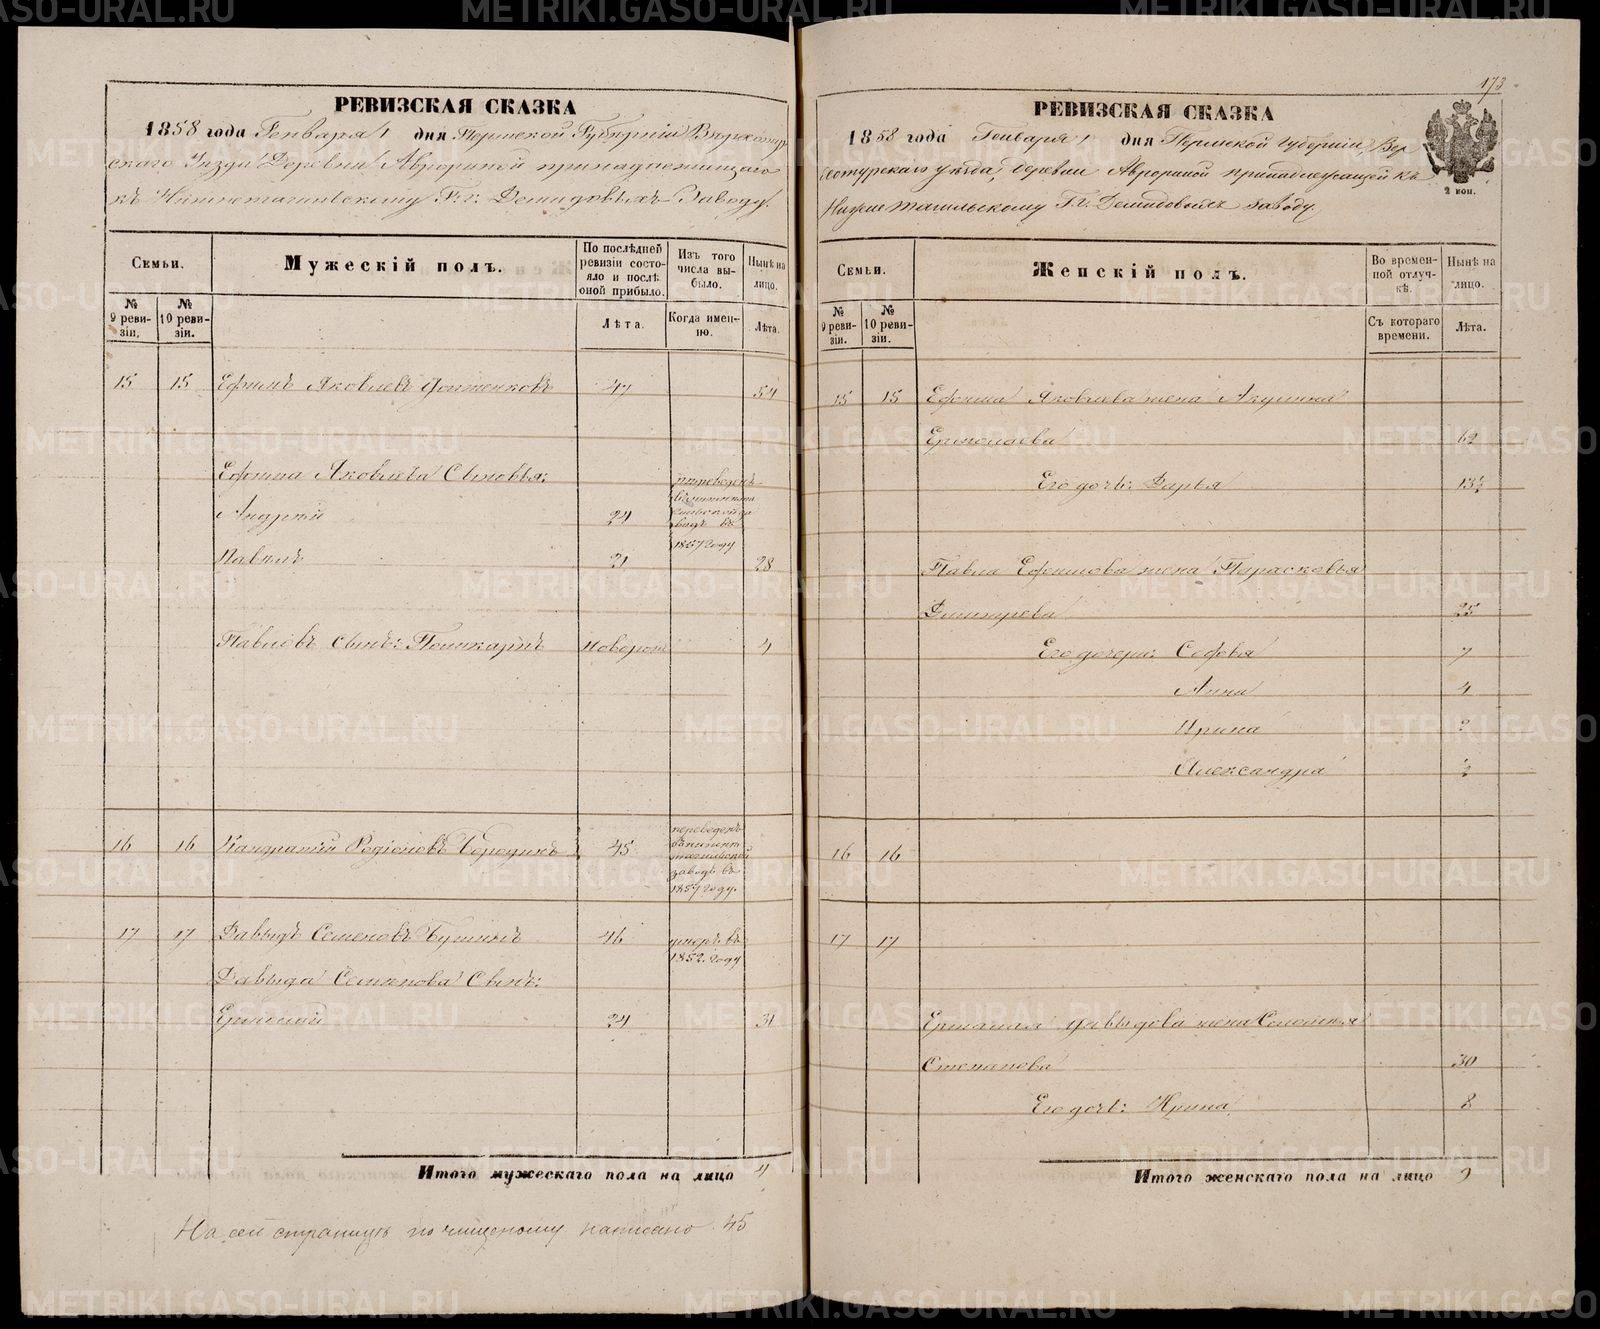 173
РЕВИЗСКАЯ СКАЗКА
1858 года Генваря 1 дня Пермской Губерніи Верхотур-
скаго Уѣзда Деревни Аврориной принадлежащаго
къ Нижнетагильскому Г.г. Демидовыхъ Заводу.
Семьи.
№ 9 реви-зіи.
№ 10 реви-зіи.
Мужескій полъ.
По послѣдней ревизіи состо-яло и послѣ оной прибыло.
Лѣта.
Изъ того числа вы-было.
Когда имен-но.
Нынѣ на лицо.
Лѣта.
15 15 Ефимъ Яковлевъ 47 54
Ефима Яковлева Сыновья:
Андрей 24 переведенъ въ Нижнетагильской заводъ въ 1857 году
Павелъ 21 28
Павловъ сынъ: Поликарпъ новорож 4
16 16 Кандратий Родіоновъ Бородинъ 45 переведенъ въ Нижнетагильской заводъ въ 1857 году.
17 17 Давыдъ Семеновъ 46 умеръ въ 1852 году
Давыда Семенова Сынъ:
Ермолай 24 31
Итого мужескаго пола на лицо 4
На сей страницѣ по чищеному написано 45
РЕВИЗСКАЯ СКАЗКА
2 коп.
1858 года Генваря 1 дня Пермской губерніи, Вер-
хотурскаго уѣзда, деревни Аврориной принадлежащей къ
Нижнетагильскому Г.г. Демидовыхъ заводу.
Семьи.
№ 9 реви-зіи.
№ 10 реви-зіи.
Женскій полъ.
Во времен-ной отлуч-кѣ.
Съ котораго времени.
Нынѣ на лицо.
Лѣта.
15 15 Ефима Яковлева жена Акулина
Ермолаева 62
Его дочь: Дарья 13½
Павла Ефимова жена Парасковья
Дмитрева 25
Его дочери: Софья 7
Анна 4
Ирина 2
Александра ½
16 16
17 17
Ермолая Давыдова жена Соломея
Степанова 30
Его дочь: Ирина 8
Итого женскаго пола на лицо 9
METRIKI.GASO-URAL.RU